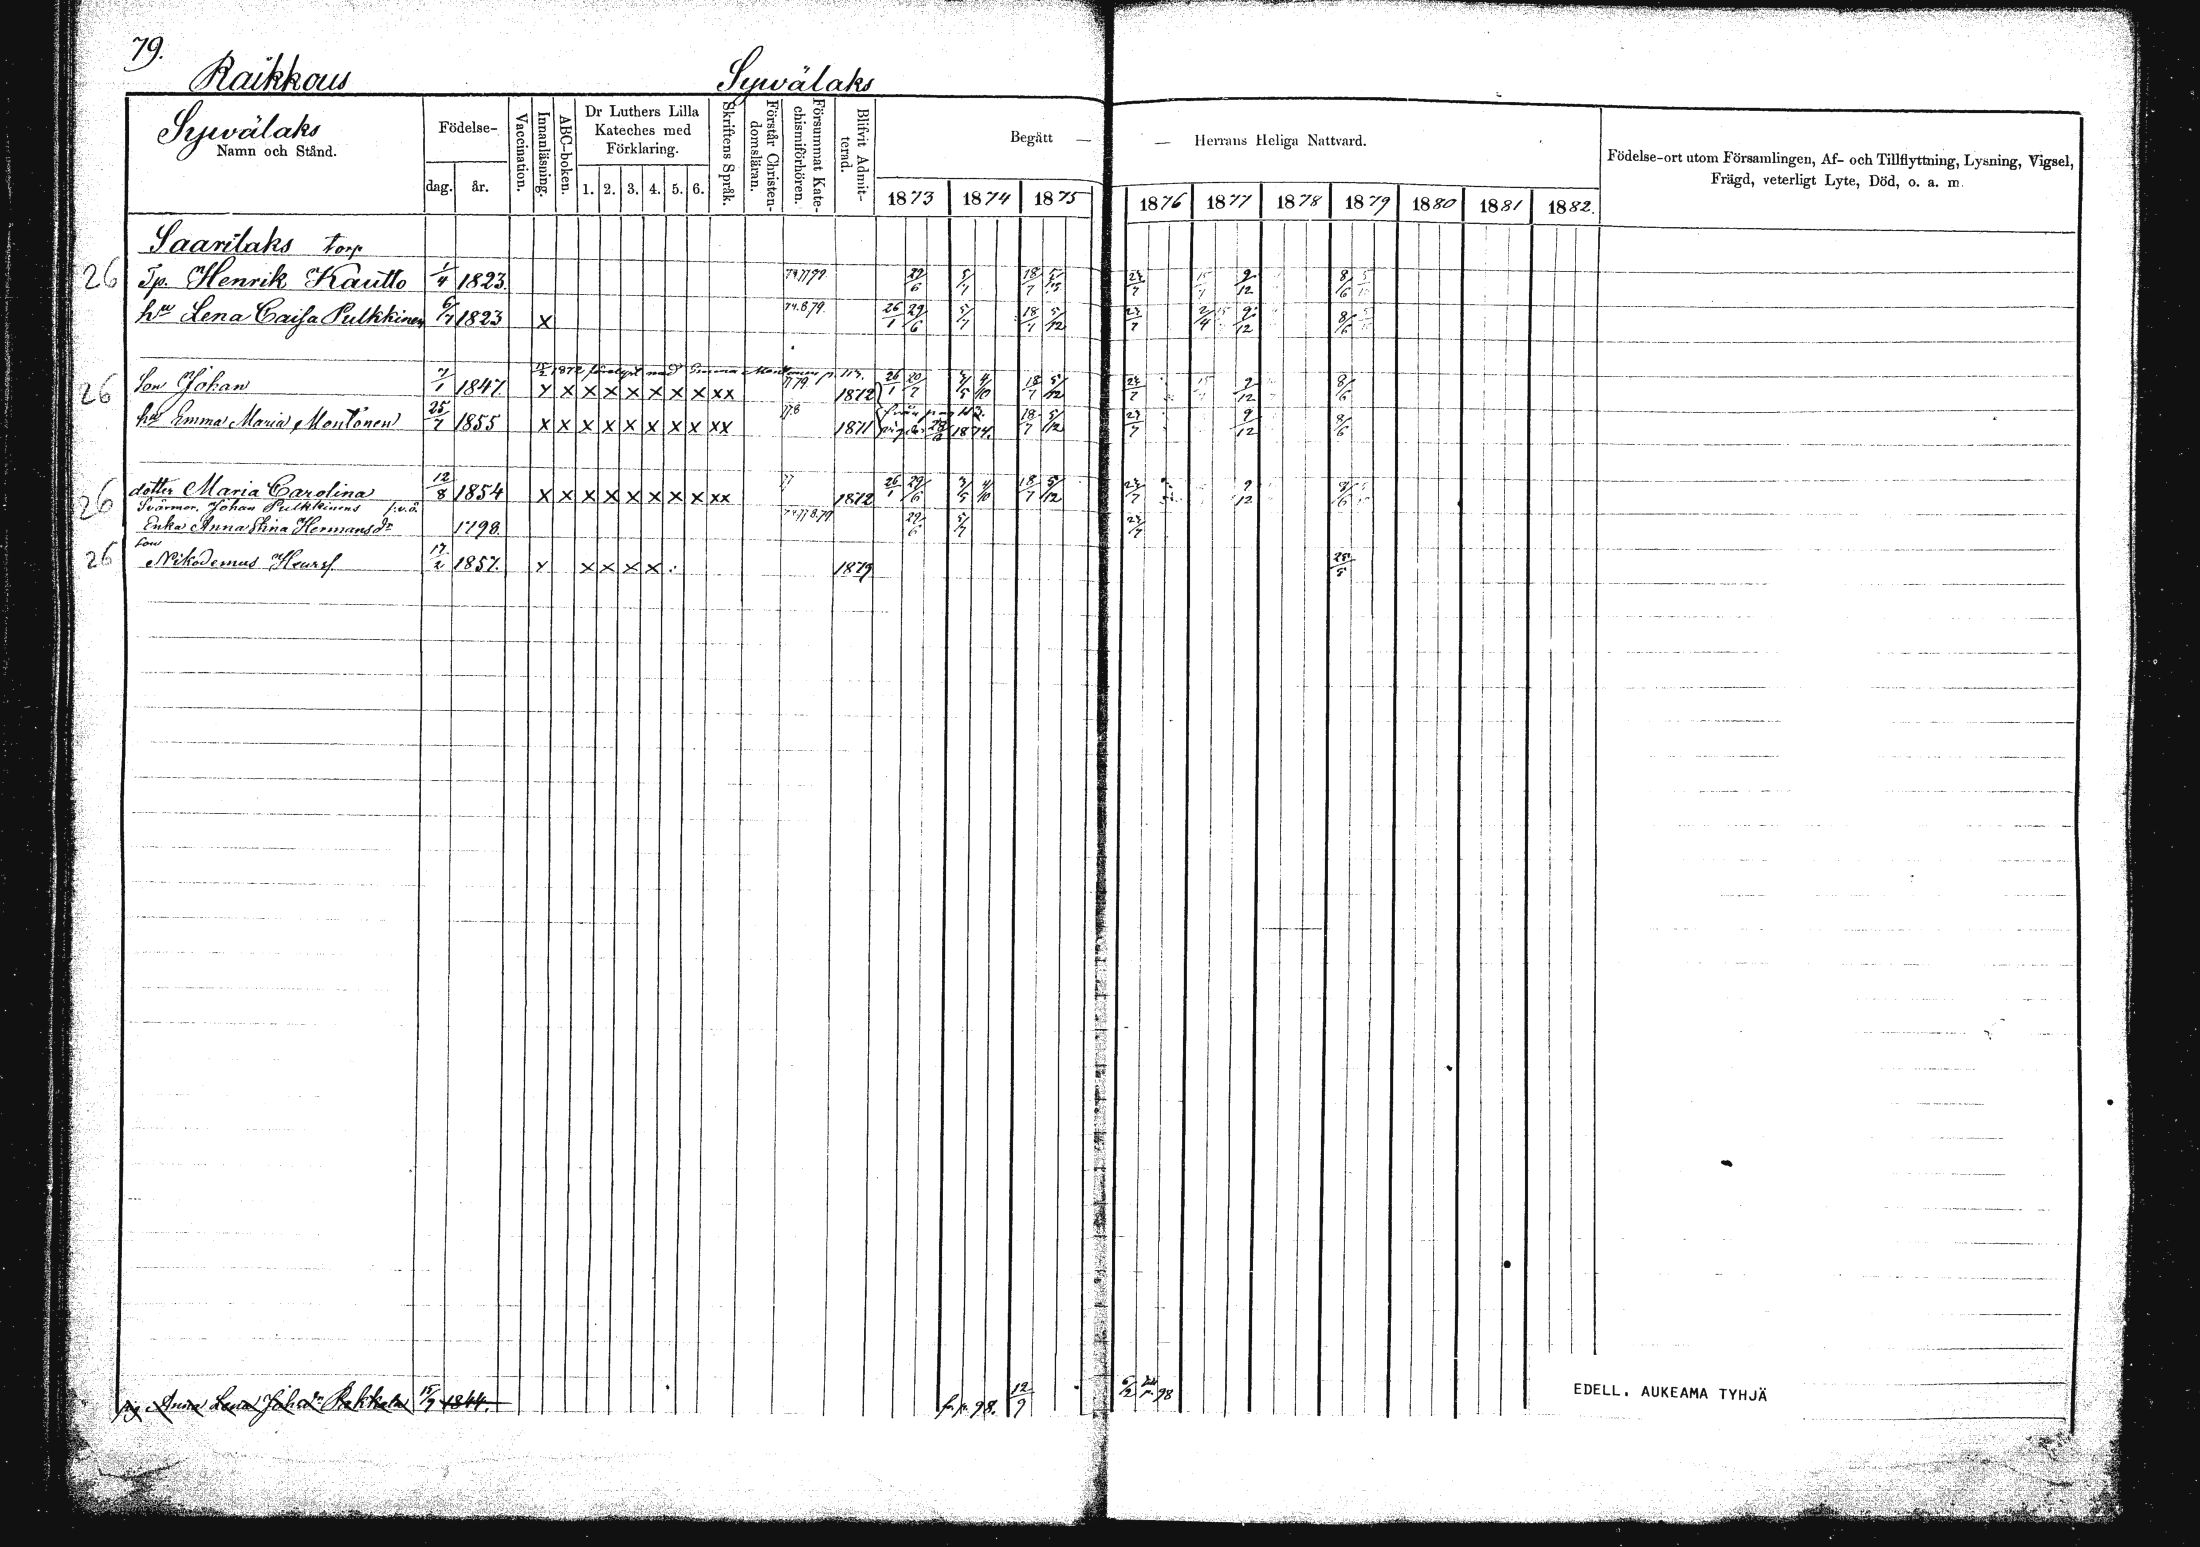 79.
Raikkous Sywälaks
Sywälaks
Namn och Stånd.
Födelse-
dag. år.
Vaccination.
Innanläsning.
ABC-boken.
Dr Luthers Lilla
Kateches med
Förklaring.
1. 2. 3. 4. 5. 6.
Skriftens Språk.
Förstår Christen-
domsläran.
Försummat Kate-
chismiförhören.
Blifvit Admit-
terad.
Begått — — Herrans Heliga Nattvard.
1873 1874 1875 1876 1877 1878 1879 1880 1881 1882.
Födelse-ort utom Församlingen, Af- och Tillflyttning, Lysning, Vigsel,
Frägd, veterligt Lyte, Död, o. a. m.
Saarilaks torp
26 Tp. Henrik Kautto 1/4 1823. 29/6 5/7 18/7 5/12 9/12 8/6
hu Lena Caisa Pulkkinen 6/7 1823 x 74.8.79. 26/1 29/6 5/7 18/7 5/12 2/4 9/12 8/6
26 Son Johan 7/1 1847. x x x x x x x x xx 77 79 1872 26/1 4/10 18/7 5/12 9/12 8/6
hu Emma Maria Montonen 25/7 1855 x x x x x x x x xx 77.8 1871 1874. 18/7 5/12 9/12 8/6
26 dotter Maria Carolina 12/8 1854 x x x x x x x x xx 77 1872 26/1 29/6 4/10 18/7 5/12 9/12 8/6
Svärmor. Johan Pulkkinens
Enka Anna Stina Hermansdr 1798. 29/6 5/7
son
26 Nikodemus Henrsf. 17/2 1857. x x x x x 1879 25/5
pig Anna Lena Johsdr 15/9 1844. fr. p. 98. 12/9 p. 98
EDELL. AUKEAMA TYHJÄ